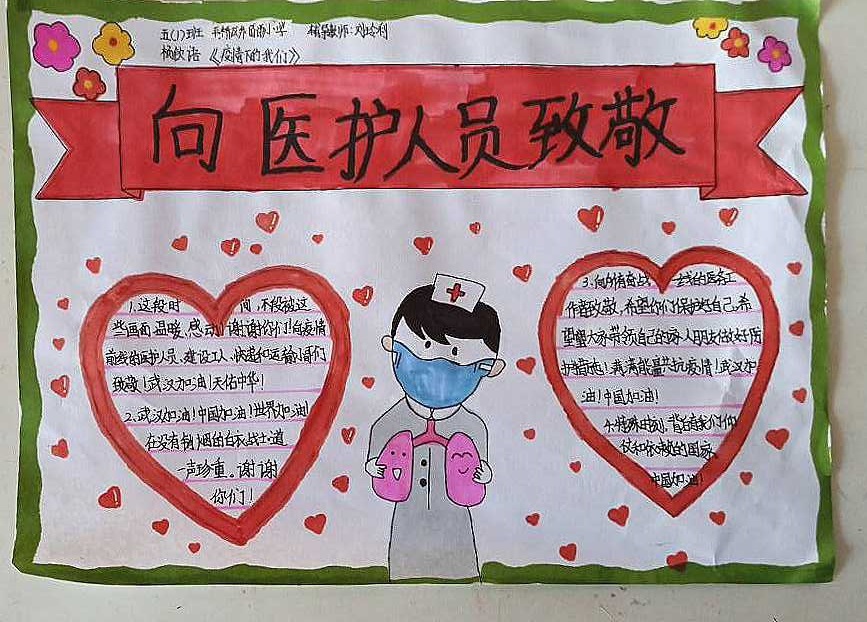 五(1)班 小学 指导教师:刘玲利
杨歆语 《疫情下的我们》
向医护人员致敬
1.这段时间,不段被这
些画面温暖、感动!谢谢你们!向疫情
前线的医护人员、建设工人、快递和运输小哥们
致敬!武汉加油!天佑中华!
2.武汉加油!中国加油!世界加油!
在没有硝烟的白衣战士道
一声珍重。谢谢
你们!
3.向所有奋战一线的医务工
作者致敬,希望你们保护好自己。希
望大家带领自己的家人朋友做好防
护措施!满满能量共抗疫情!武汉加
油!中国加油!
4.特殊时刻,背后有我们仰
仗和依赖的国家。
中国加油!